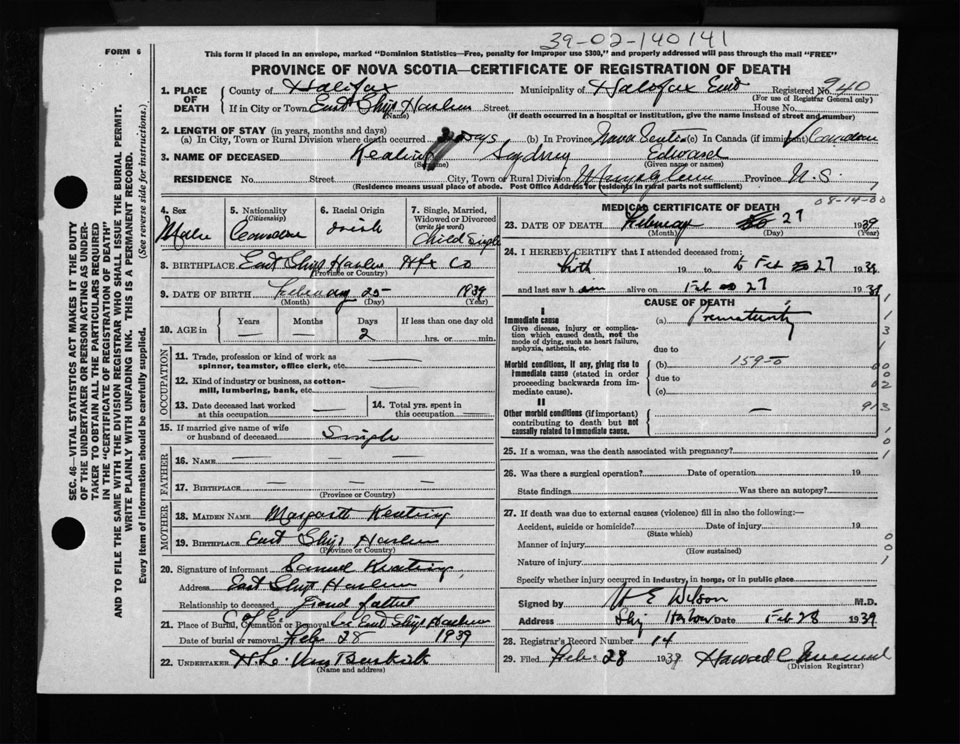 39-02-140141
FORM 6
This form if placed in an envelope, marked "Dominion Statistics—Free, penalty for improper use $300," and properly addressed will pass through the mail "FREE"
PROVINCE OF NOVA SCOTIA—CERTIFICATE OF REGISTRATION OF DEATH
SEC. 46—VITAL STATISTICS ACT MAKES IT THE DUTY
OF THE UNDERTAKER OR PERSON ACTING AS UNDER-
TAKER TO OBTAIN ALL THE PARTICULARS REQUIRED
IN THE "CERTIFICATE OF REGISTRATION OF DEATH"
AND TO FILE THE SAME WITH THE DIVISION REGISTRAR WHO SHALL ISSUE THE BURIAL PERMIT.
WRITE PLAINLY WITH UNFADING INK. THIS IS A PERMANENT RECORD.
Every item of information should be carefully supplied. (See reverse side for instructions.)
1. PLACE OF DEATH
County of Halifax Municipality of Halifax East Registered No. 940
(For use of Registrar General only)
If in City or Town East Ship Harbour Street House No.
(Name) (If death occurred in a hospital or institution, give the name instead of street and number)
2. LENGTH OF STAY (in years, months and days)
(a) In City, Town or Rural Division where death occurred 2 Days (b) In Province Nova Scotia (c) In Canada (if immigrant) Canadian
3. NAME OF DECEASED Keating Sydney Edward
(Surname) (Given name or names)
RESIDENCE No. Street City, Town or Rural Division Province N.S.
(Residence means usual place of abode. Post Office Address for residents in rural parts not sufficient)
4. Sex Male
5. Nationality (Citizenship) Canadian
6. Racial Origin Irish
7. Single, Married, Widowed or Divorced (write the word) Child Single
8. BIRTHPLACE East Ship Harbour Hfx Co
(Province or Country)
9. DATE OF BIRTH February 25 1939
(Month) (Day) (Year)
10. AGE in Years Months Days If less than one day old
— — 2 hrs. or min.
OCCUPATION
11. Trade, profession or kind of work as spinner, teamster, office clerk, etc. —
12. Kind of industry or business, as cotton-mill, lumbering, bank, etc. —
13. Date deceased last worked at this occupation —
14. Total yrs. spent in this occupation —
15. If married give name of wife or husband of deceased Single
FATHER
16. NAME — — —
17. BIRTHPLACE — — —
(Province or Country)
MOTHER
18. MAIDEN NAME Margaret Keating
19. BIRTHPLACE East Ship Harbour
(Province or Country)
20. Signature of informant Samuel Keating
Address East Ship Harbour
Relationship to deceased Grand father
21. Place of Burial, Cremation or Removal C of E East Ship Harbour
Date of burial or removal Feb 28 1939
22. UNDERTAKER H.L. Van Buskirk
(Name and address)
MEDICAL CERTIFICATE OF DEATH
08-14-00
23. DATE OF DEATH February 27 1939
(Month) (Day) (Year)
24. I HEREBY CERTIFY that I attended deceased from:
birth 19 to Feb 27 1939
and last saw him alive on Feb 27 1939
CAUSE OF DEATH
I
Immediate cause
Give disease, injury or complication which caused death, not the mode of dying, such as heart failure, asphyxia, asthenia, etc.
(a) Prematurity
due to
Morbid conditions, if any, giving rise to immediate cause (stated in order proceeding backwards from immediate cause).
(b) 159-0
due to
(c)
II
Other morbid conditions (if important) contributing to death but not causally related to immediate cause.
—
913
25. If a woman, was the death associated with pregnancy?
26. Was there a surgical operation? Date of operation 19
State findings Was there an autopsy?
27. If death was due to external causes (violence) fill in also the following:—
Accident, suicide or homicide? Date of injury 19
(State which)
Manner of injury
(How sustained)
Nature of injury
Specify whether injury occurred in industry, in home, or in public place
Signed by W E Wilson M.D.
Address Ship Harbour Date Feb 28 1939
28. Registrar's Record Number 14
29. Filed Feb 28 1939 Howard C
(Division Registrar)